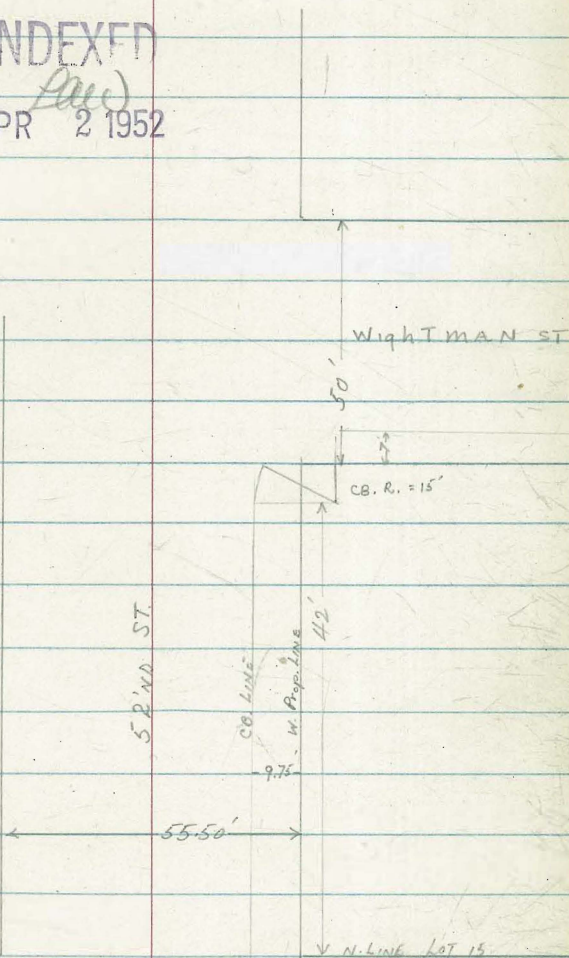 NDEXED
PR 2 1952
WIGHTMAN ST
50'
7'
CB. R. = 15'
42'
52'ND ST.
CB. LINE
W. Prop. LINE
9.75
55.50'
N. LINE LOT 15